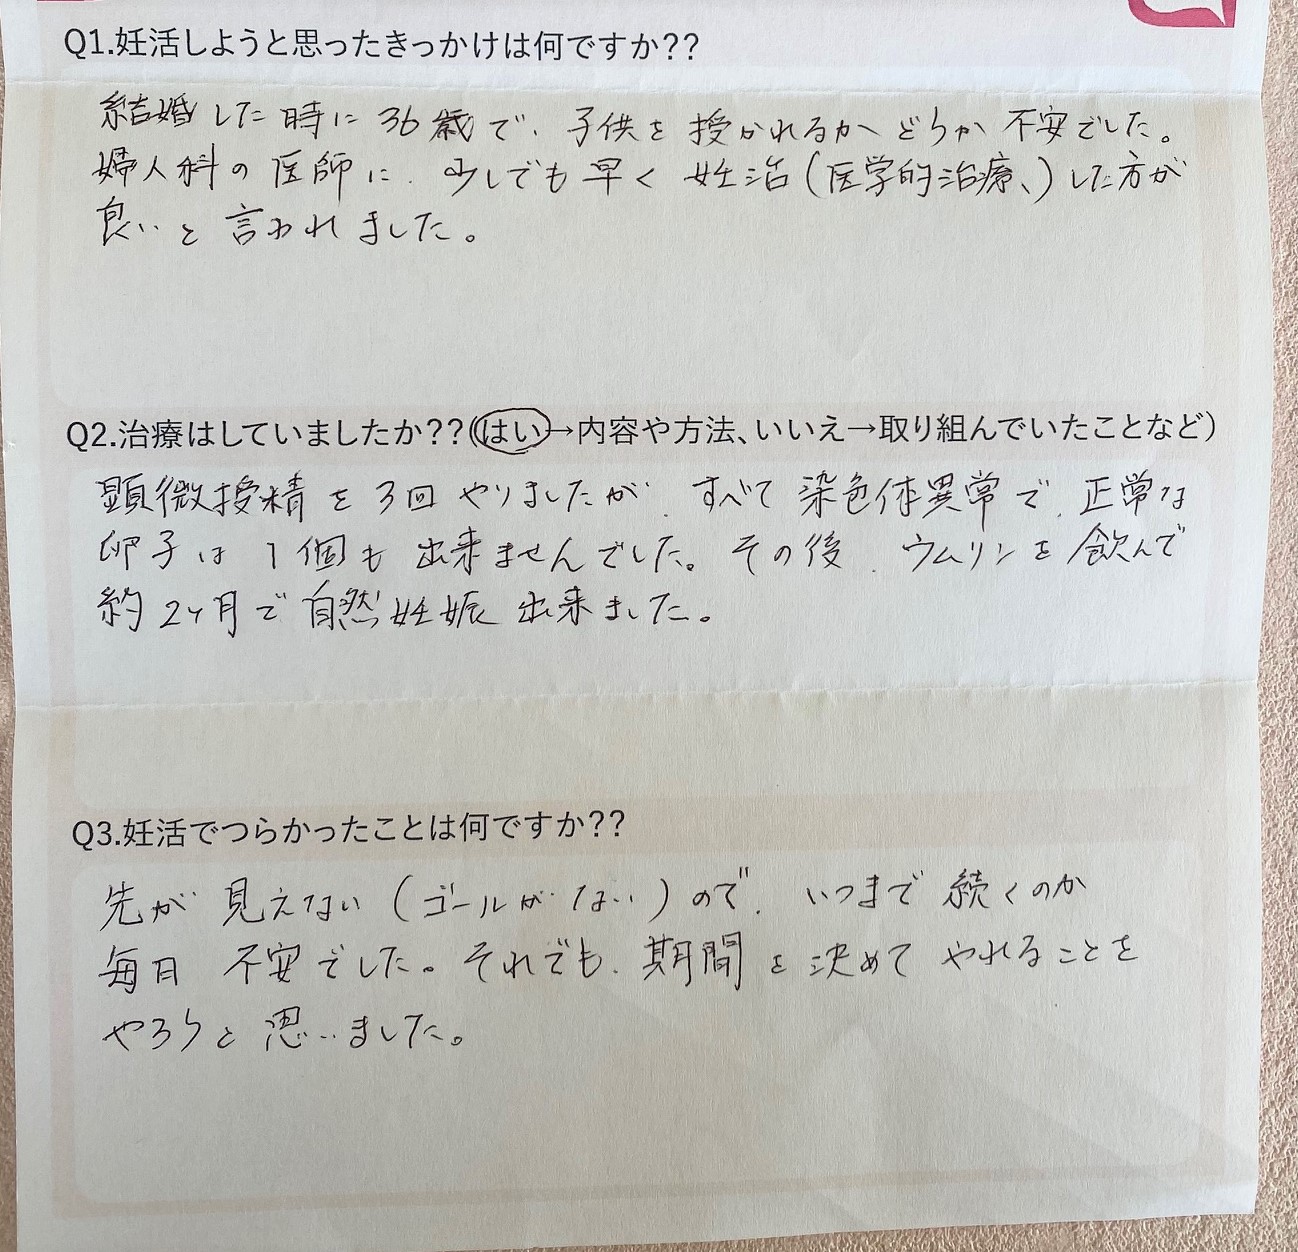 Q1.妊活しようと思ったきっかけは何ですか??
結婚した時に36歳で、子供を授かれるかどうか不安でした。
婦人科の医師に、少しでも早く妊活(医学的治療、)した方が
良いと言われました。
Q2.治療はしていましたか??(はい→内容や方法、いいえ→取り組んでいたことなど)
顕微授精を3回やりましたが、すべて染色体異常で、正常な
卵子は1個も出来ませんでした。その後、ウムリンを飲んで
約2ヶ月で自然妊娠出来ました。
Q3.妊活でつらかったことは何ですか??
先が見えない(ゴールがない)ので、いつまで続くのか
毎日不安でした。それでも、期間を決めてやれることを
やろうと思いました。